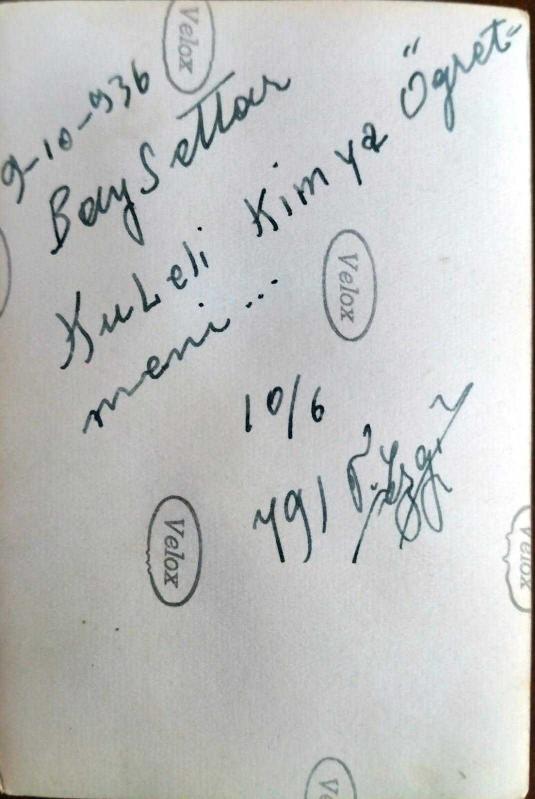 Velox
9-10-936
Bay Settar
Kuleli Kimya Öğret-
meni...
Velox
10/6
791
Velox
Velox
Ve